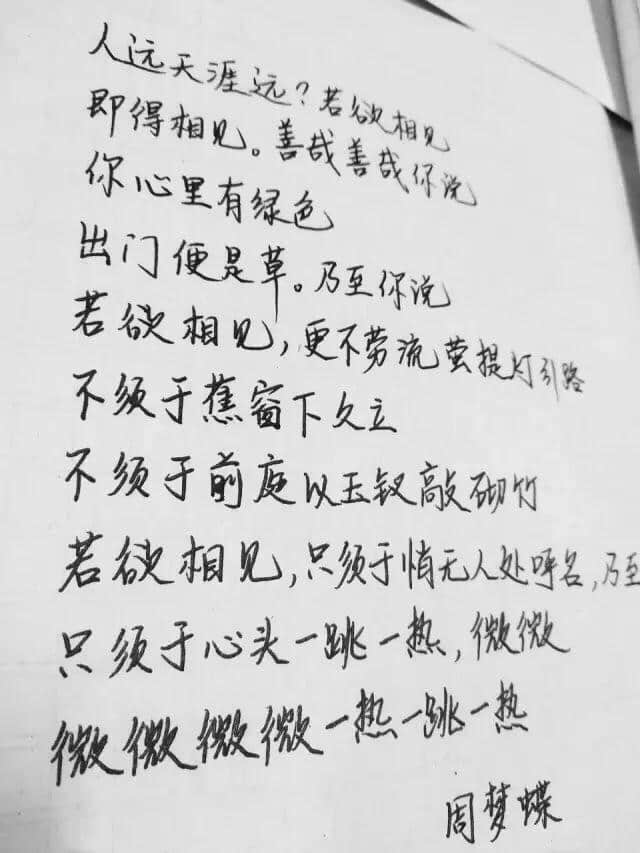 人远天涯远？若欲相见
即得相见。善哉善哉你说
你心里有绿色
出门便是草。乃至你说
若欲相见，更不劳流萤提灯引路
不须于蕉窗下久立
不须于前庭以玉钗敲砌竹
若欲相见，只须于悄无人处呼名，乃至
只须于心头一跳一热，微微
微微微微一热一跳一热
周梦蝶